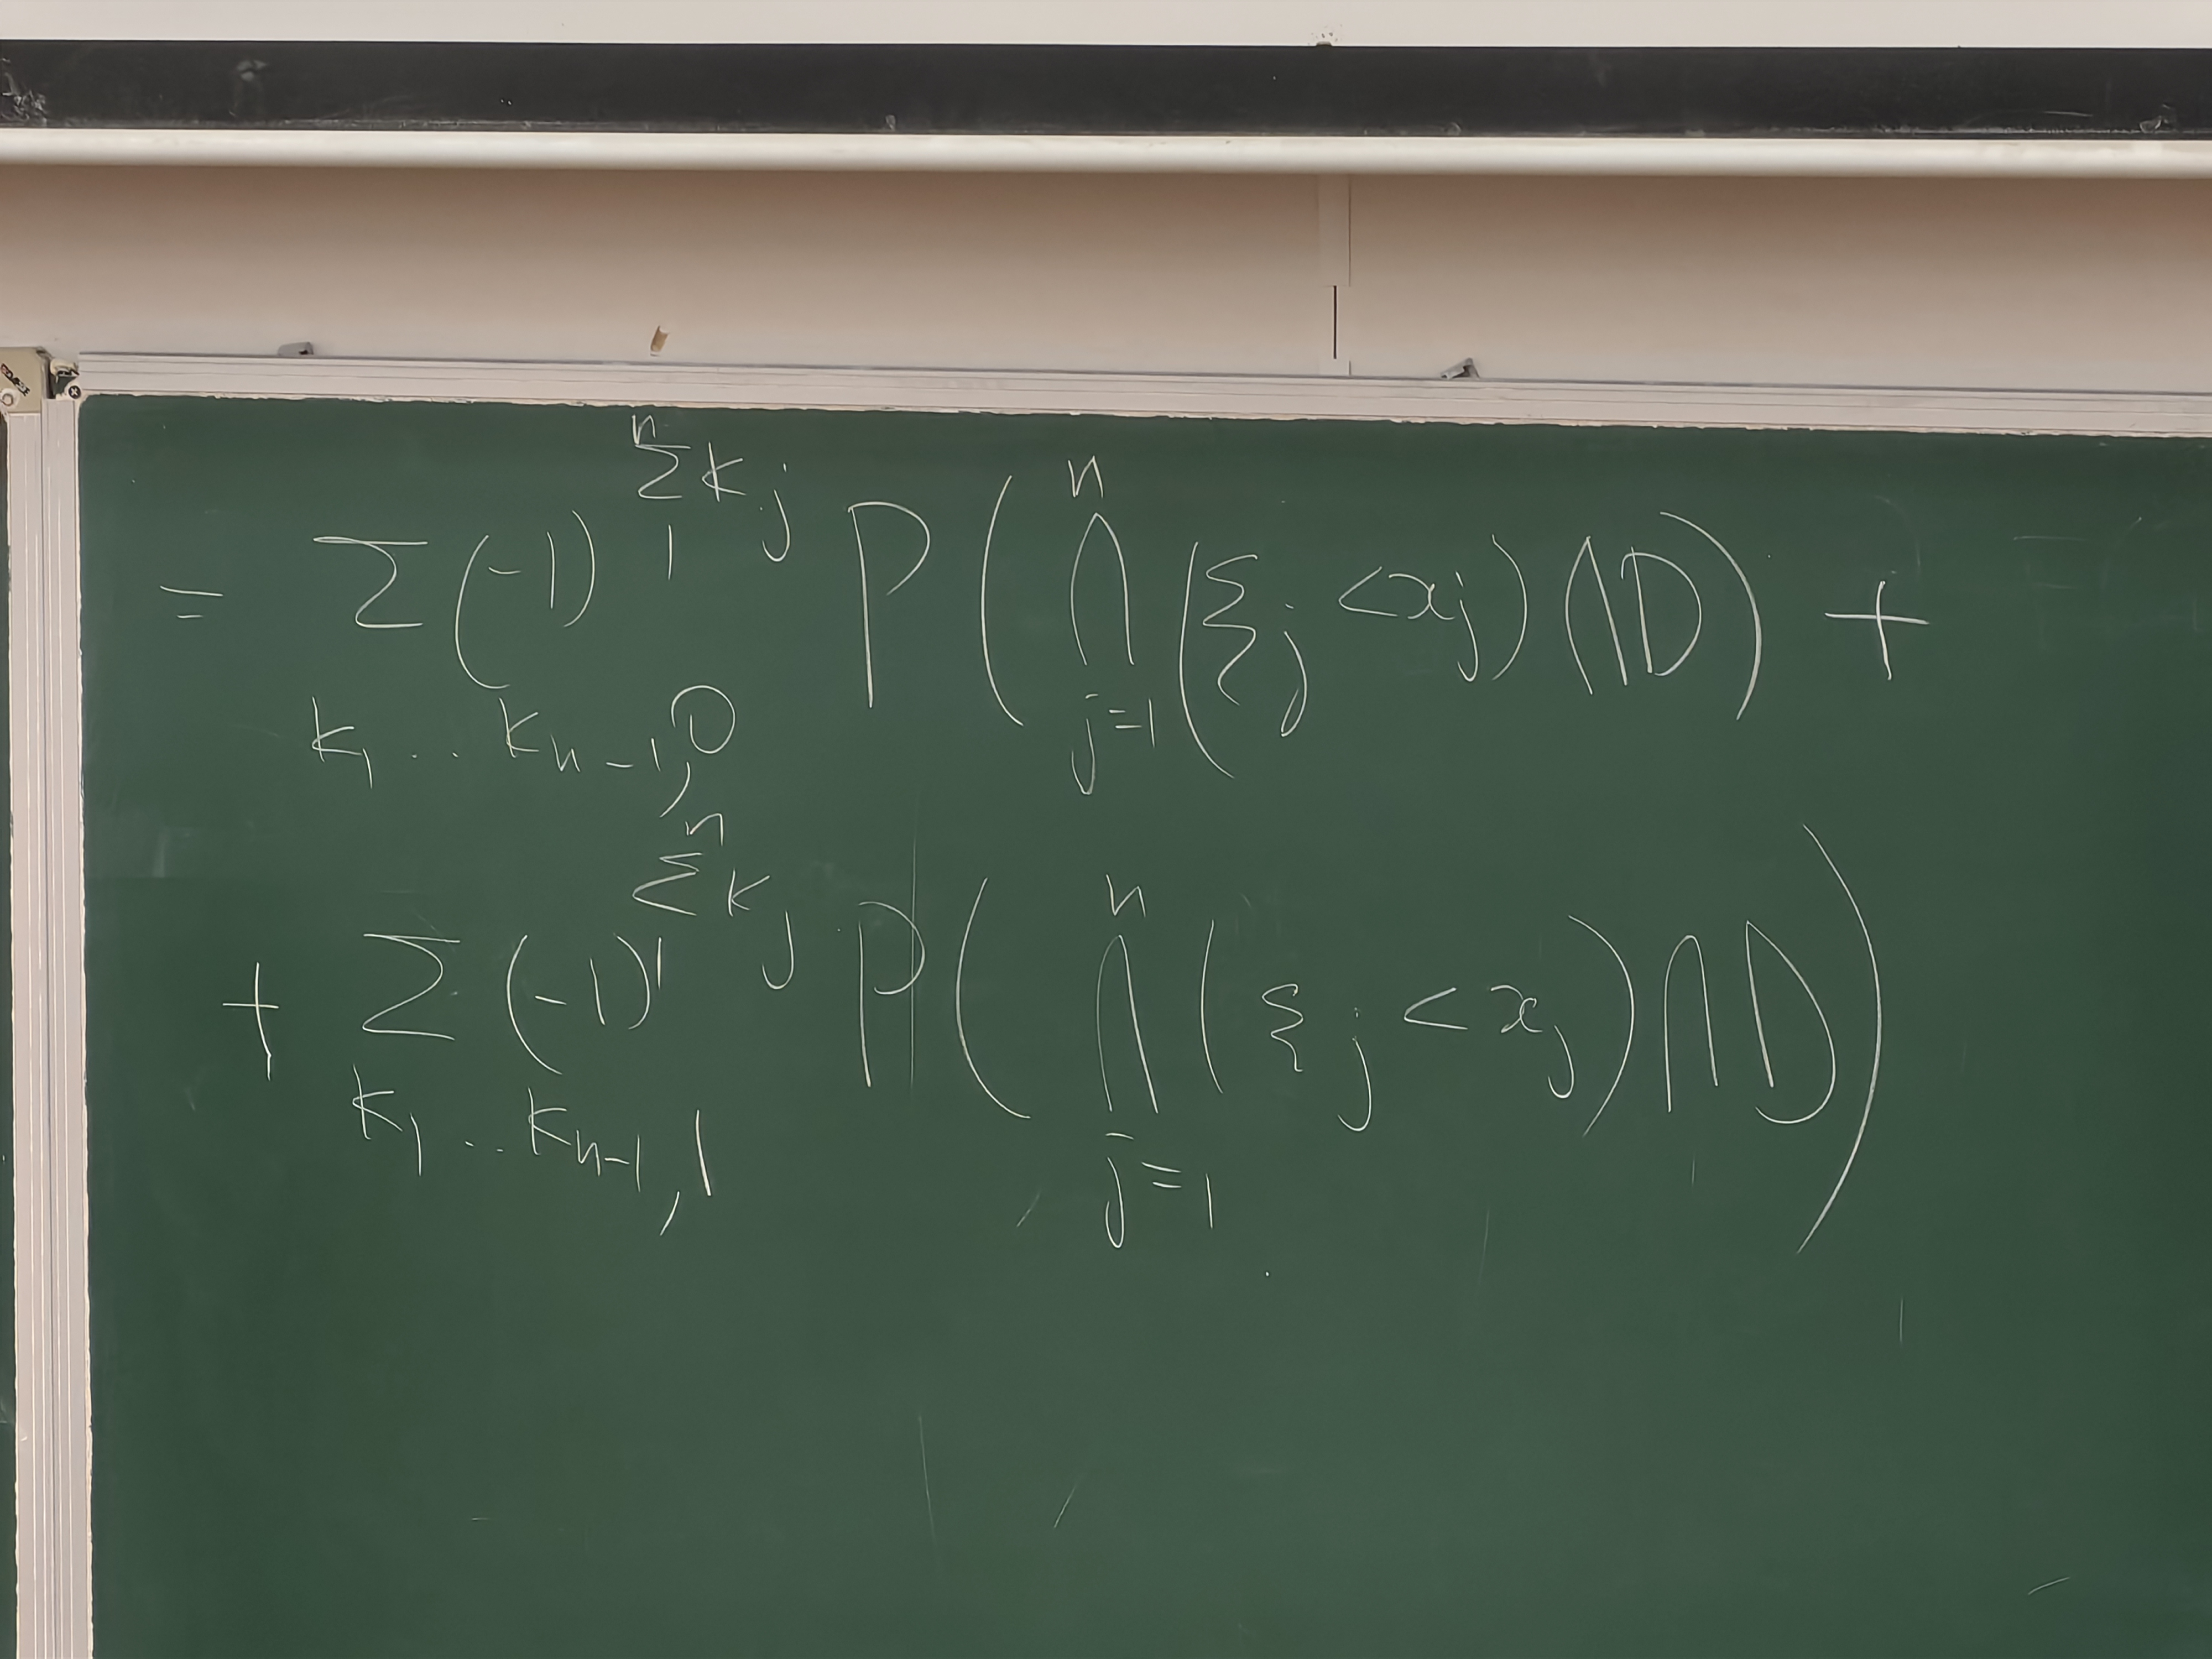 = Σ_{k_1 .. k_{n-1}, 0} (-1)^{Σ_1^n k_j} P( ⋂_{j=1}^n (ξ_j < x_j) ∩ D ) +
+ Σ_{k_1 .. k_{n-1}, 1} (-1)^{Σ_1^n k_j} P( ⋂_{j=1}^n (ξ_j < x_j) ∩ D )